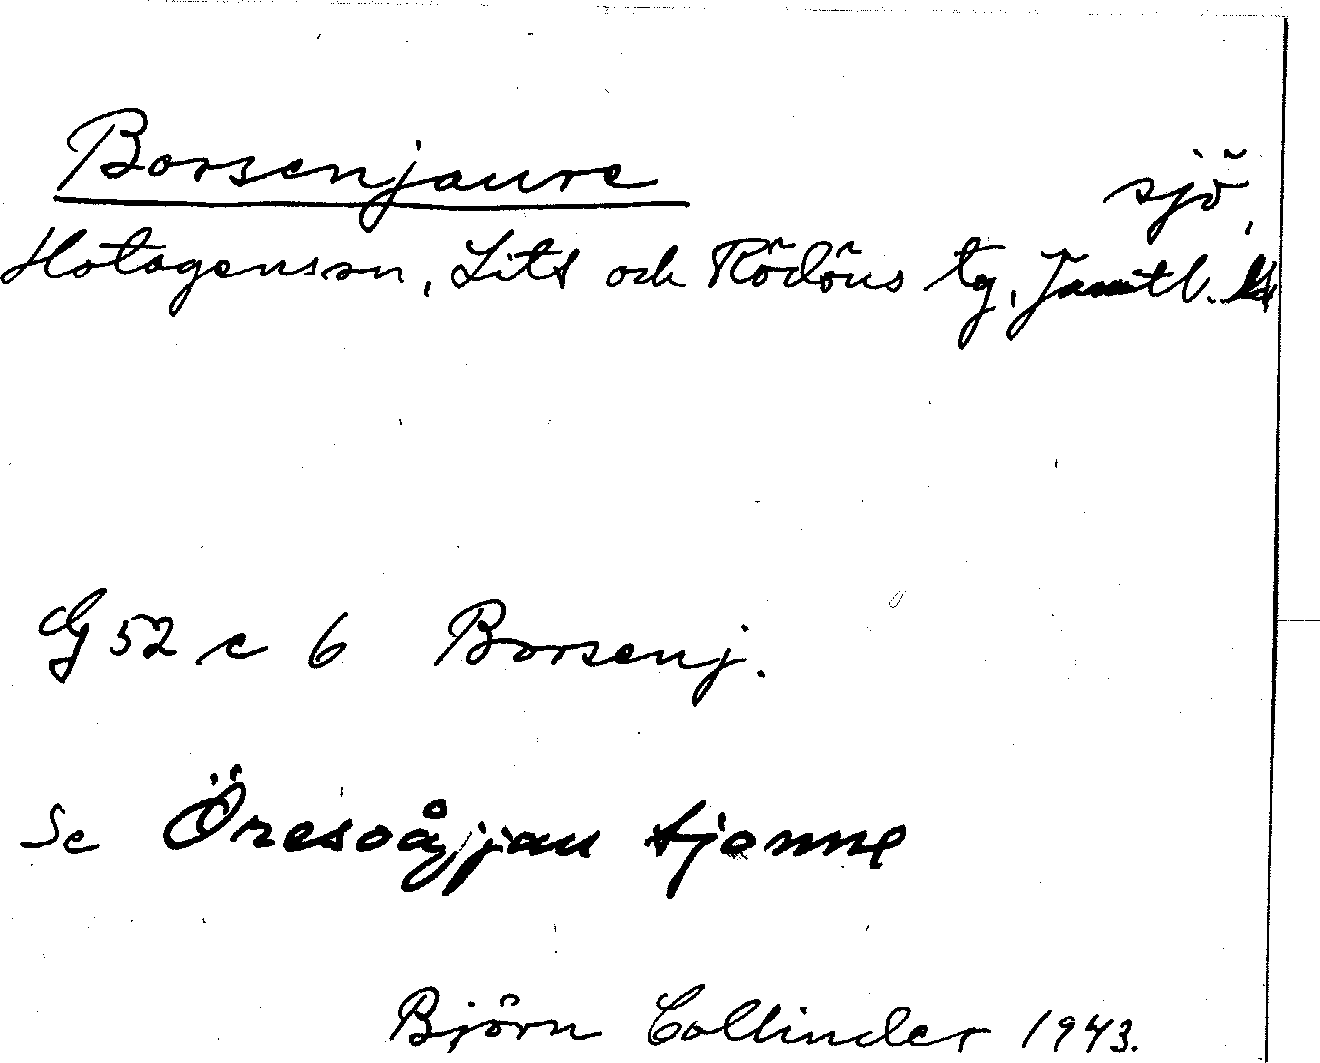 Borsenjaure sjö,
Hotagens sn, Lits och Rödöns tg, Jämtl.
G 52 c 6 Borsenj.
Se Öresoåjjan tjonne
Björn Collinder 1943.